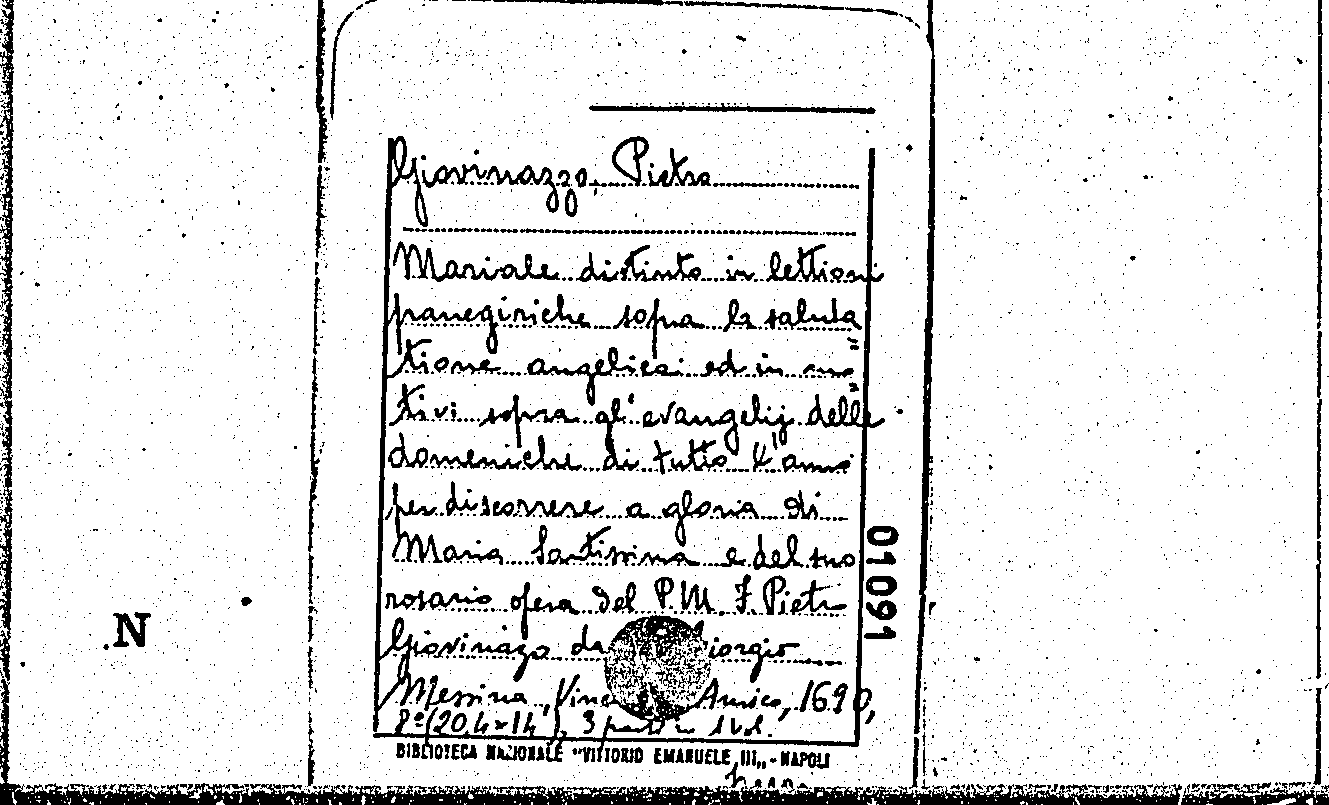 Giovinazzo, Pietro
Mariale distinto in lettioni
panegiriche sopra la saluta
tione angelica ed in mo=
tivi sopra gl'evangelij delle
domeniche di tutto l'anno
per discorrere a gloria di
Maria Santissima e del suo
rosario opera del P.M. F. Pietro
Giovinazo da
Messina, Amico, 1690,
8º (20,4×14), 3 in 1 vol.
BIBLIOTECA NAZIONALE "VITTORIO EMANUELE III„ - NAPOLI
01091
N